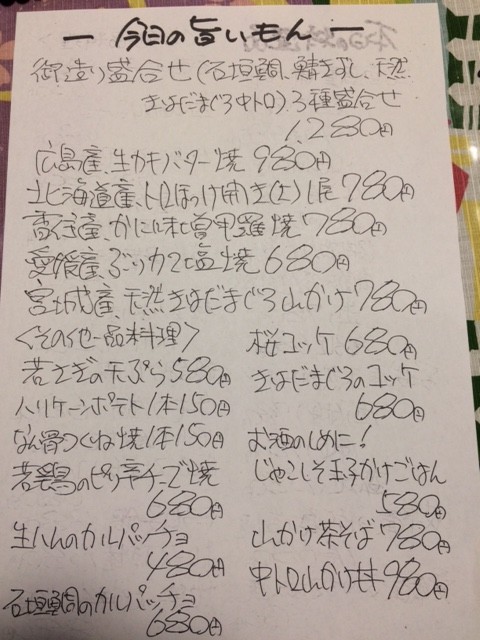 ― 今日の旨いもん ―
御造り盛合せ(石垣鯛、鯖きずし、天然
きはだまぐろ中トロ)3種盛合せ
1,280円
広島産、生カキバター焼 980円
北海道産、トロほっけ開き(大)1尾 780円
香住産、かに味噌甲羅焼 780円
愛媛産、ぶりカマ塩焼 680円
宮城産、天然きはだまぐろ山かけ 780円
<その他一品料理>
若さぎの天ぷら 580円
ハリケーンポテト1本150円
なん骨つくね焼1本150円
若鶏のピリ辛チーズ焼
680円
生ハムのカルパッチョ
480円
石垣鯛のカルパッチョ
680円
桜ユッケ 680円
きはだまぐろのユッケ
680円
お酒のしめに!
じゃこしそ玉子かけごはん
580円
山かけ茶そば 780円
中トロ山かけ丼 980円